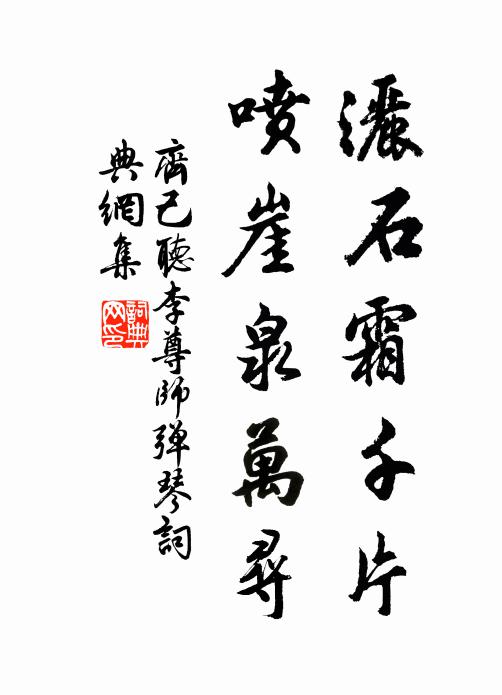 灑石霜千片
噴崖泉萬尋
齊己聽李尊師彈琴詞
典網集
詞典
网印